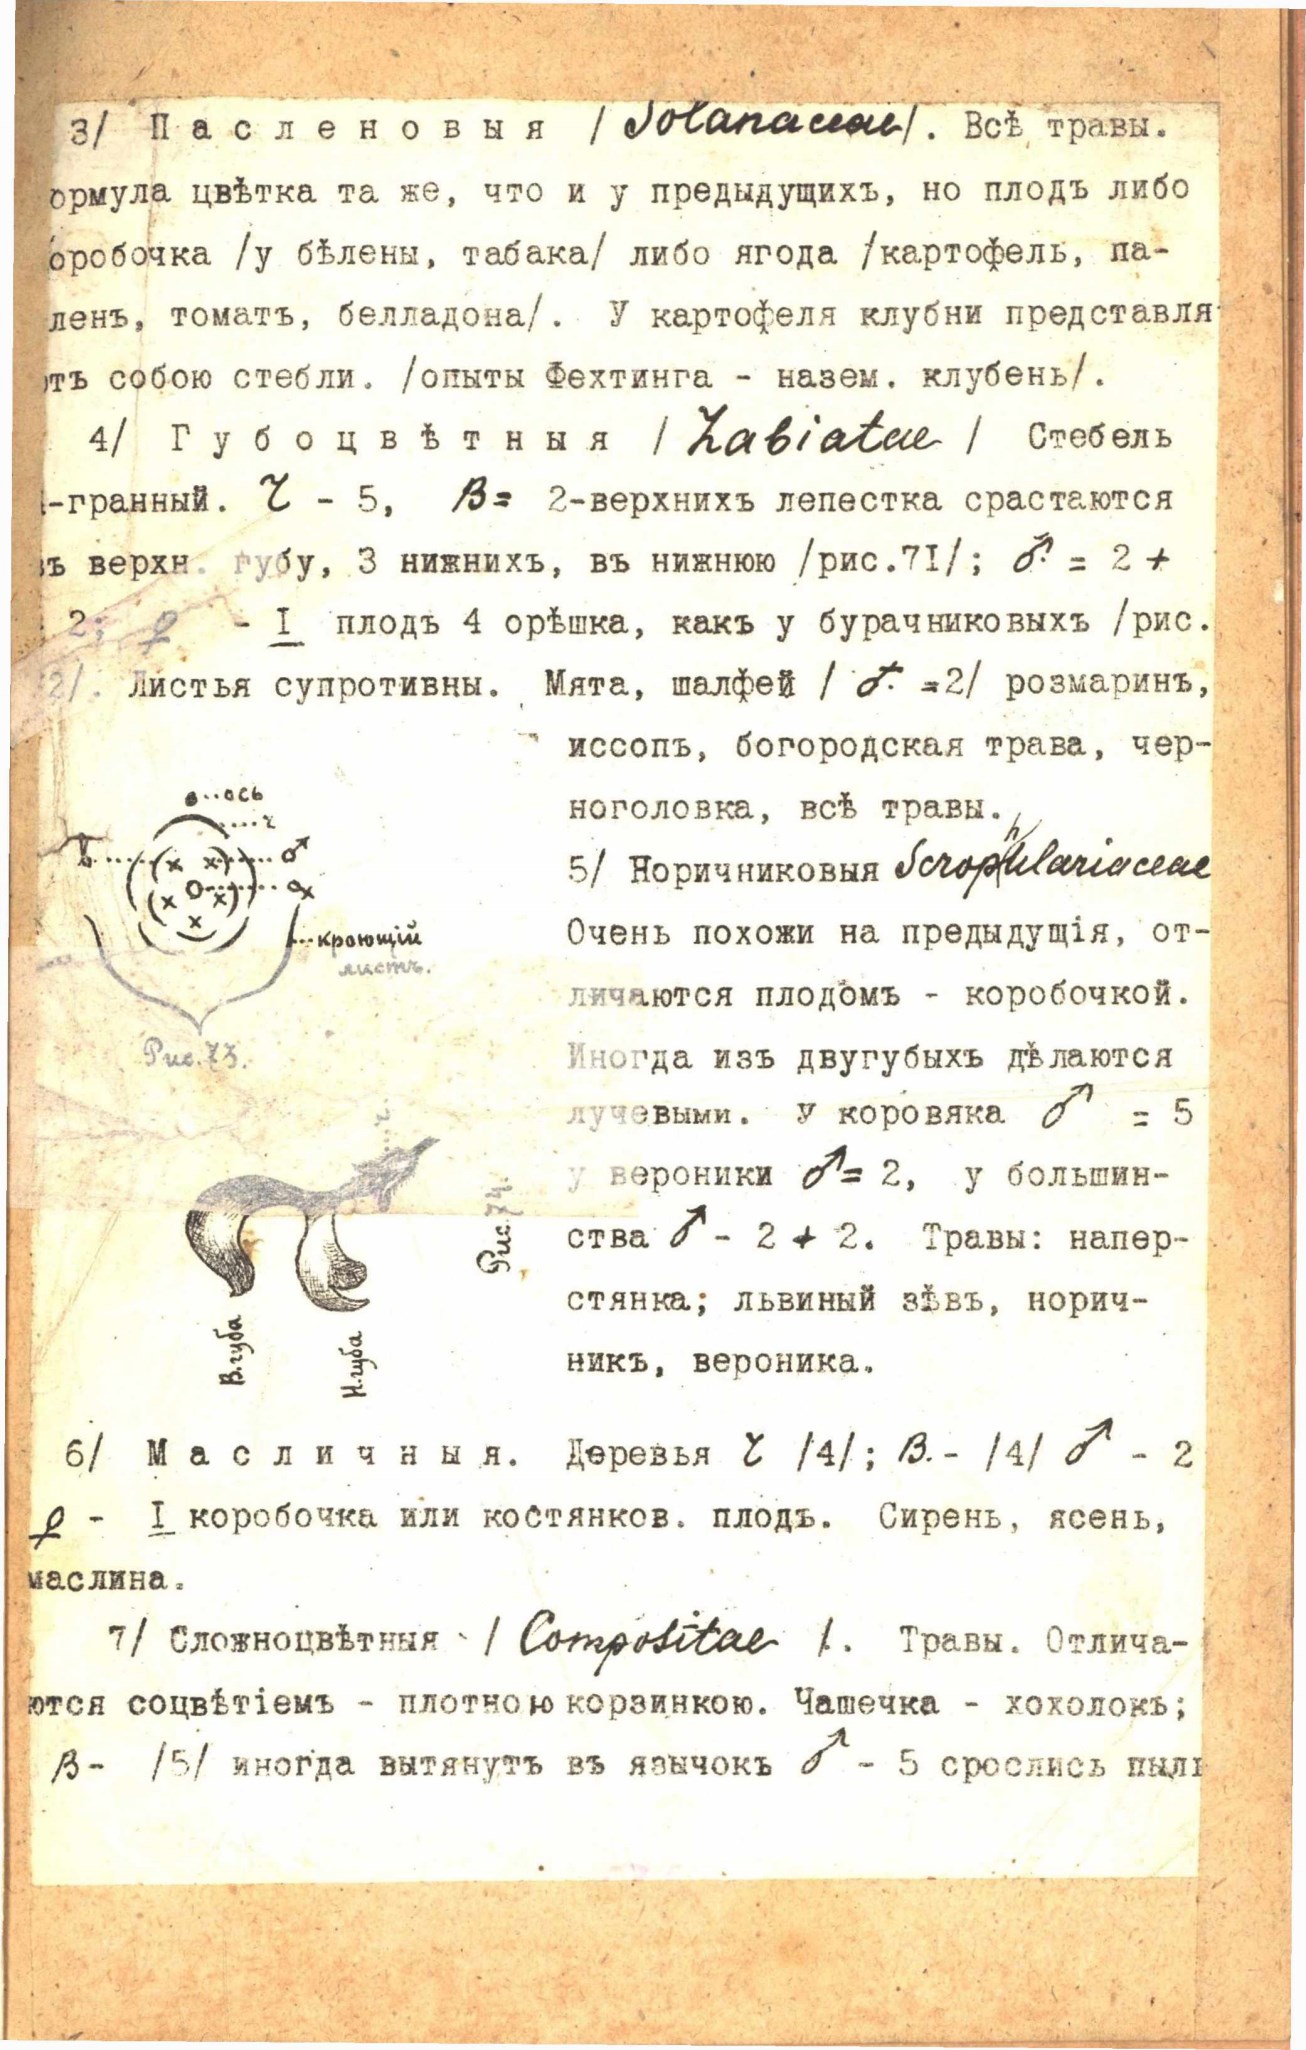 3/ Пасленовыя /Solanaceae/. Всѣ травы.
ормула цвѣтка та же, что и у предыдущихъ, но плодъ либо
оробочка /у бѣлены, табака/ либо ягода /картофель, па-
ленъ, томатъ, белладона/. У картофеля клубни представля
отъ собою стебли. /опыты Фехтинга - назем. клубень/.
4/ Губоцвѣтныя /Labiatae/ Стебель
-гранный. Ч - 5, В= 2-верхнихъ лепестка срастаются
въ верхн. губу, 3 нижнихъ, въ нижнюю /рис.7I/; ♂ = 2 +
2; ♀ - I плодъ 4 орѣшка, какъ у бурачниковыхъ /рис.
2/. Листья супротивны. Мята, шалфей / ♂ =2/ розмаринъ,
иссопъ, богородская трава, чер-
ноголовка, всѣ травы.
5/ Норичниковыя Scrophulariaceae
Очень похожи на предыдущія, от-
личаются плодомъ - коробочкой.
Иногда изъ двугубыхъ дѣлаются
лучевыми. У коровяка ♂ = 5
у вероники ♂= 2, у большин-
ства ♂ - 2 + 2. Травы: напер-
стянка; львиный зѣвъ, норич-
никъ, вероника.
ось
ч
♂
кроющій
листъ.
Рис. 73.
Рис. 74.
В. губа
Н. губа
6/ Масличныя. Деревья Ч /4/; В.- /4/ ♂ - 2
♀ - I коробочка или костянков. плодъ. Сирень, ясень,
маслина.
7/ Сложноцвѣтныя /Compositae/. Травы. Отлича-
ются соцвѣтіемъ - плотною корзинкою. Чашечка - хохолокъ;
В- /5/ иногда вытянутъ въ язычокъ ♂ - 5 срослись пыль